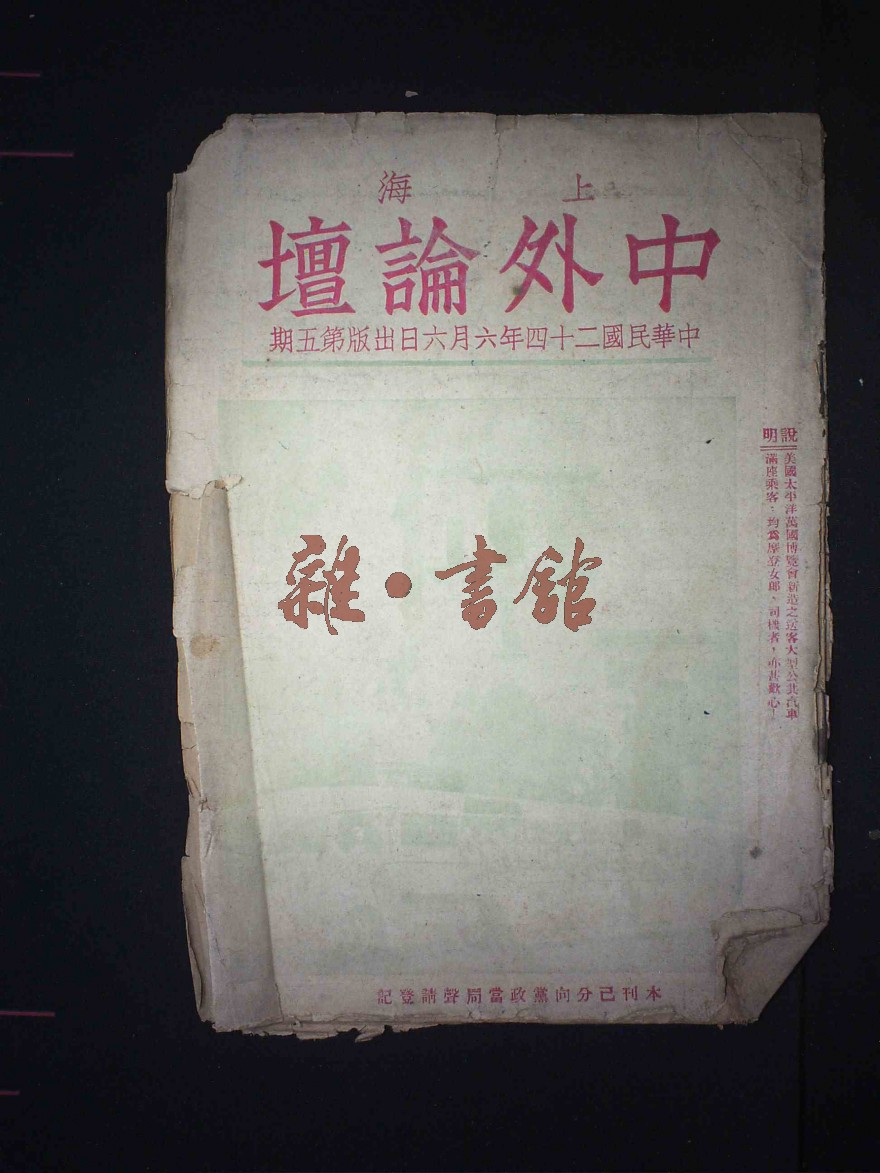 上海
中外論壇
中華民國二十四年六月六日出版第五期
說明
美國太平洋萬國博覽會新造之送客大型公共汽車
滿座乘客：均為摩登女郎、司機者，亦甚歡心！
雜·書舘
本刊已分向黨政當局聲請登記